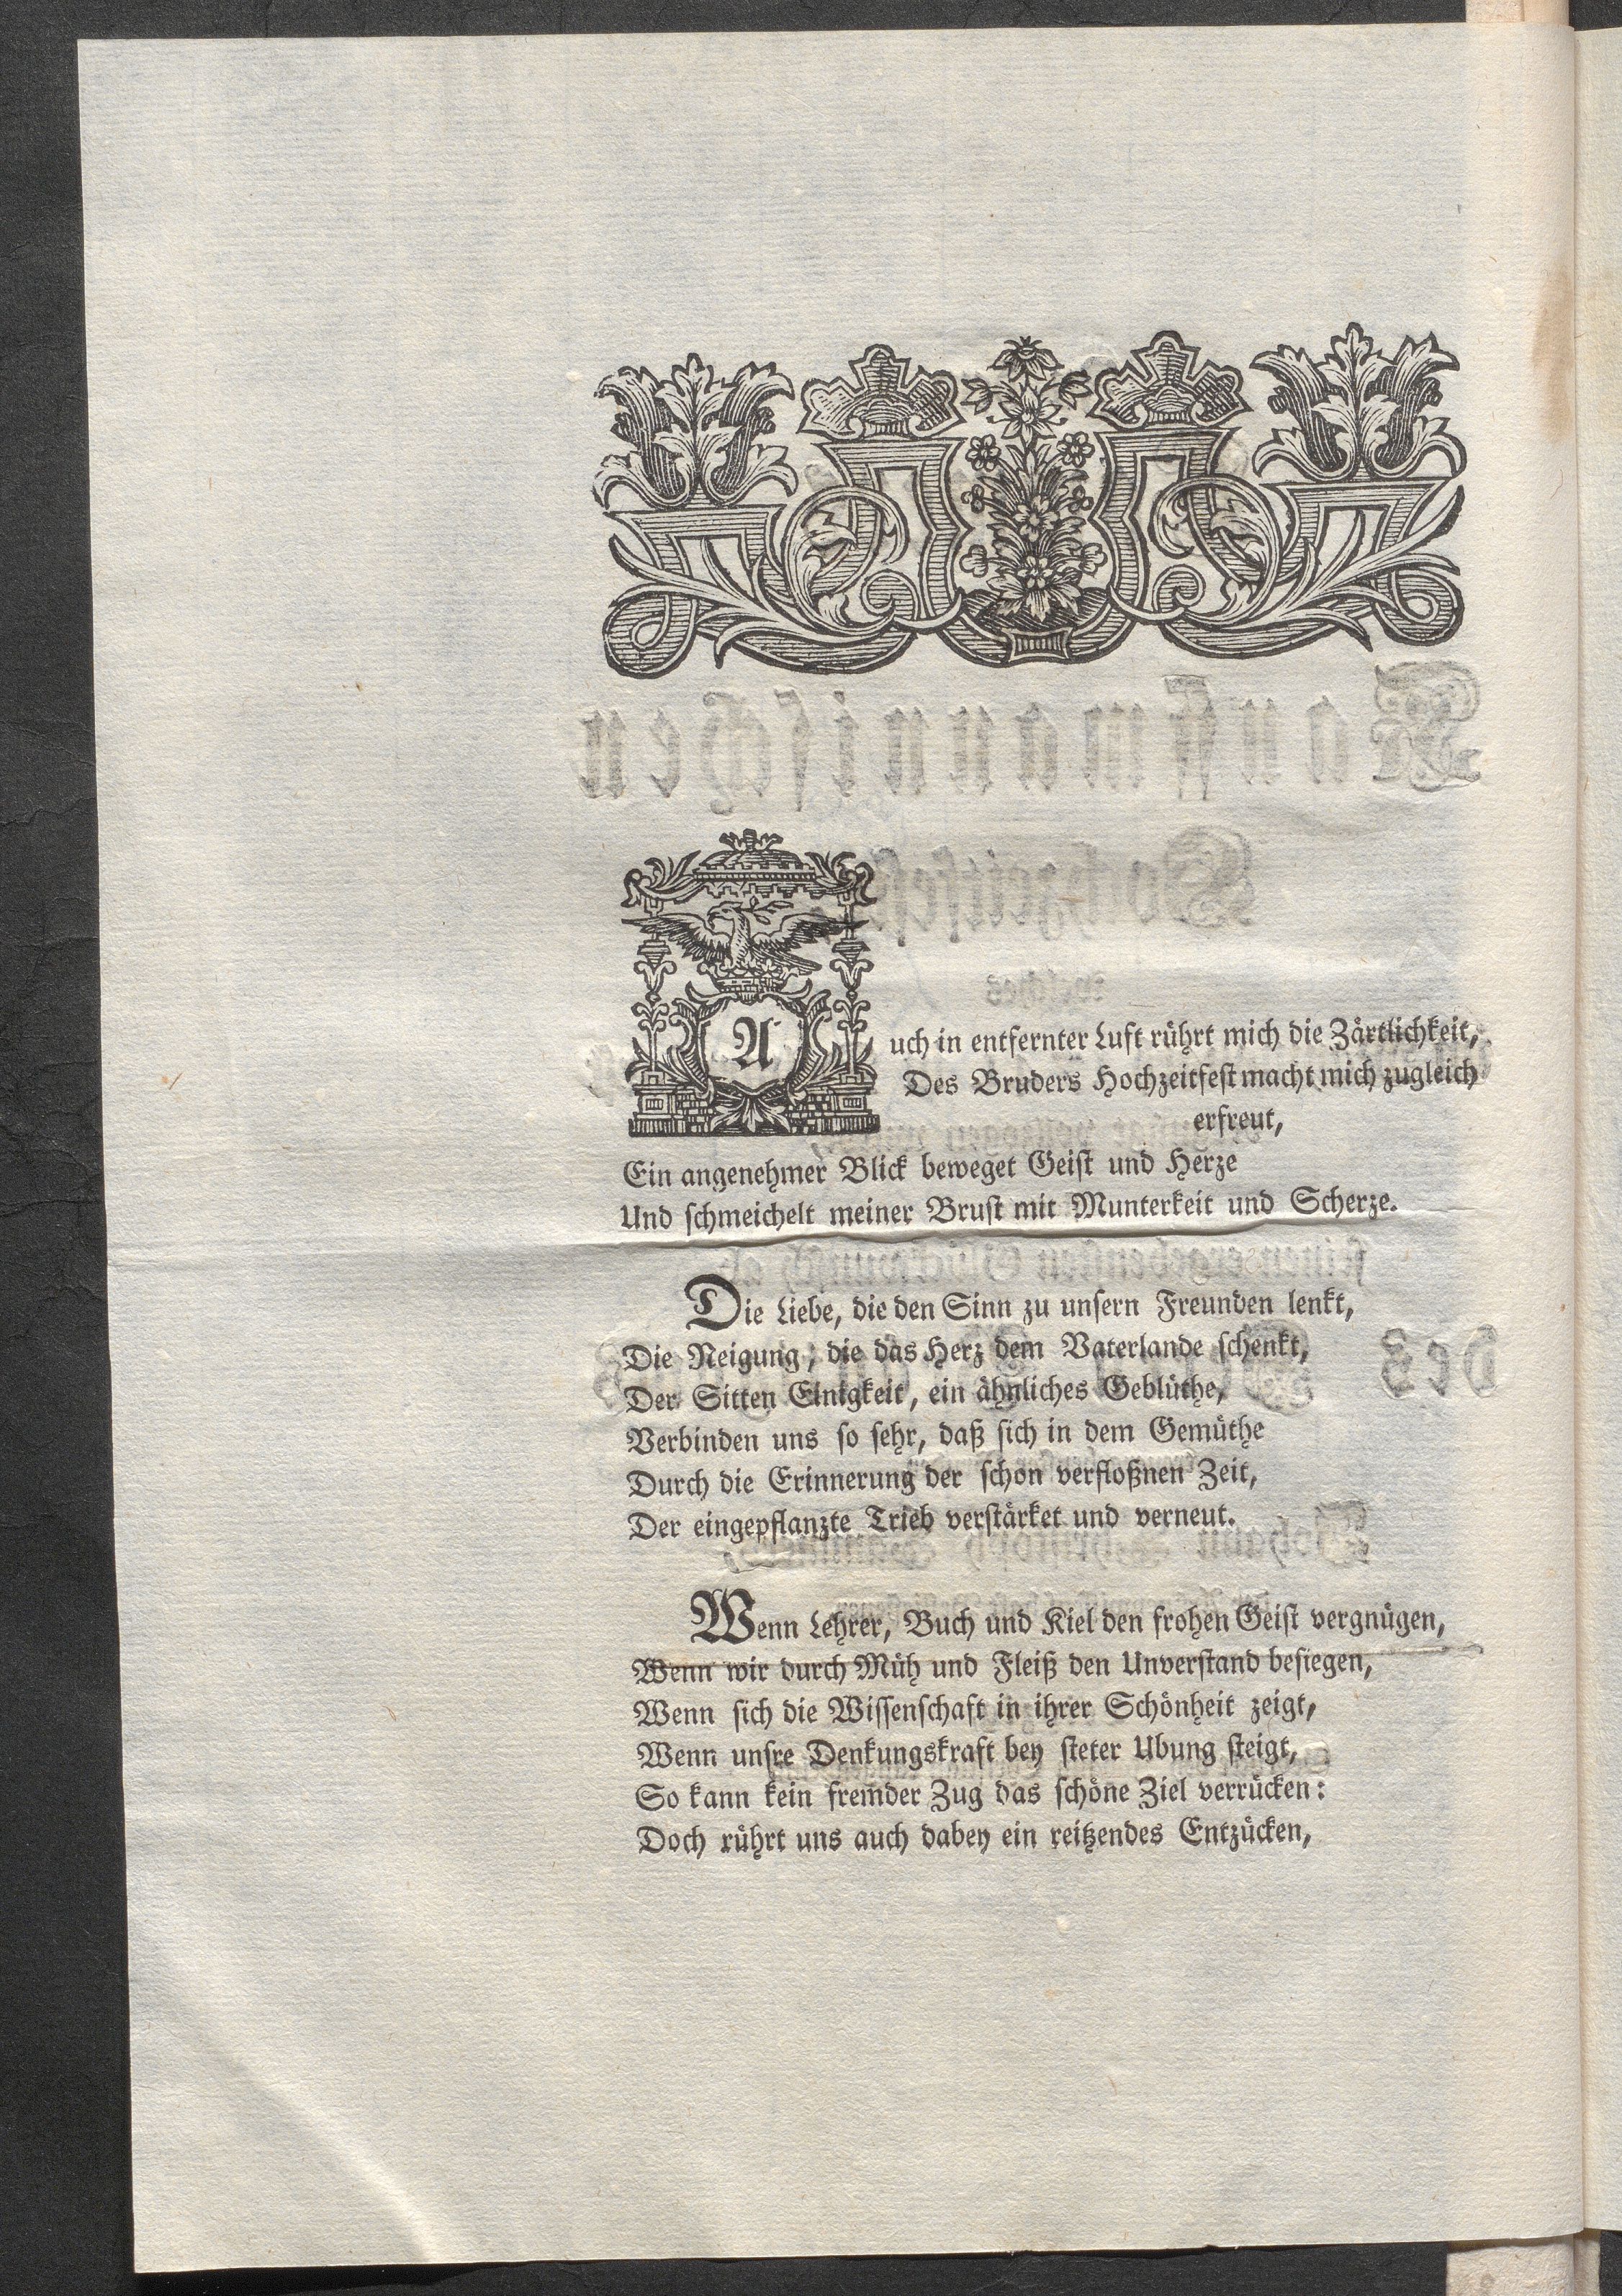 Auch in entfernter Luft rührt mich die Zärtlichkeit,
Des Bruders Hochzeitfest macht mich zugleich
erfreut,
Ein angenehmer Blick beweget Geist und Herze
Und schmeichelt meiner Brust mit Munterkeit und Scherze.
Die Liebe, die den Sinn zu unsern Freunden lenkt,
Die Neigung, die das Herz dem Vaterlande schenkt,
Der Sitten Einigkeit, ein ähnliches Geblüthe,
Verbinden uns so sehr, daß sich in dem Gemüthe
Durch die Erinnerung der schon verfloßnen Zeit,
Der eingepflanzte Trieb verstärket und verneut.
Wenn Lehrer, Buch und Kiel den frohen Geist vergnügen,
Wenn wir durch Müh und Fleiß den Unverstand besiegen,
Wenn sich die Wissenschaft in ihrer Schönheit zeigt,
Wenn unsre Denkungskraft bey steter Ubung steigt,
So kann kein fremder Zug das schöne Ziel verrücken:
Doch rührt uns auch dabey ein reitzendes Entzücken,